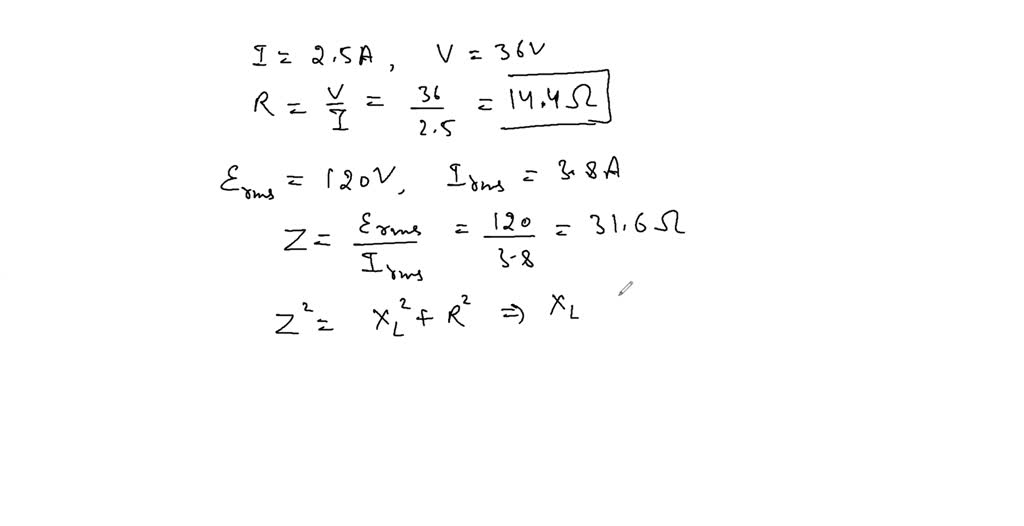 I = 2.5A, V = 36V
R = V/I = 36/2.5 = 14.4Ω
Ɛrms = 120V, Irms = 3.8A
Z = Ɛrms/Irms = 120/3-8 = 31.6Ω
Z² = XL² + R² ⇒ XL